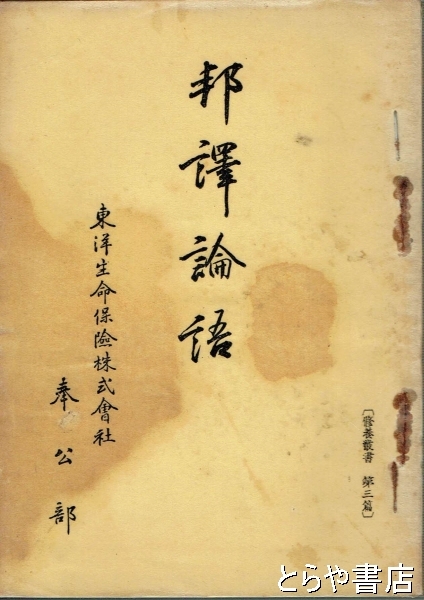 〔修養叢書 第三篇〕
邦譯論語
東洋生命保險株式會社
奉公部
とらや書店